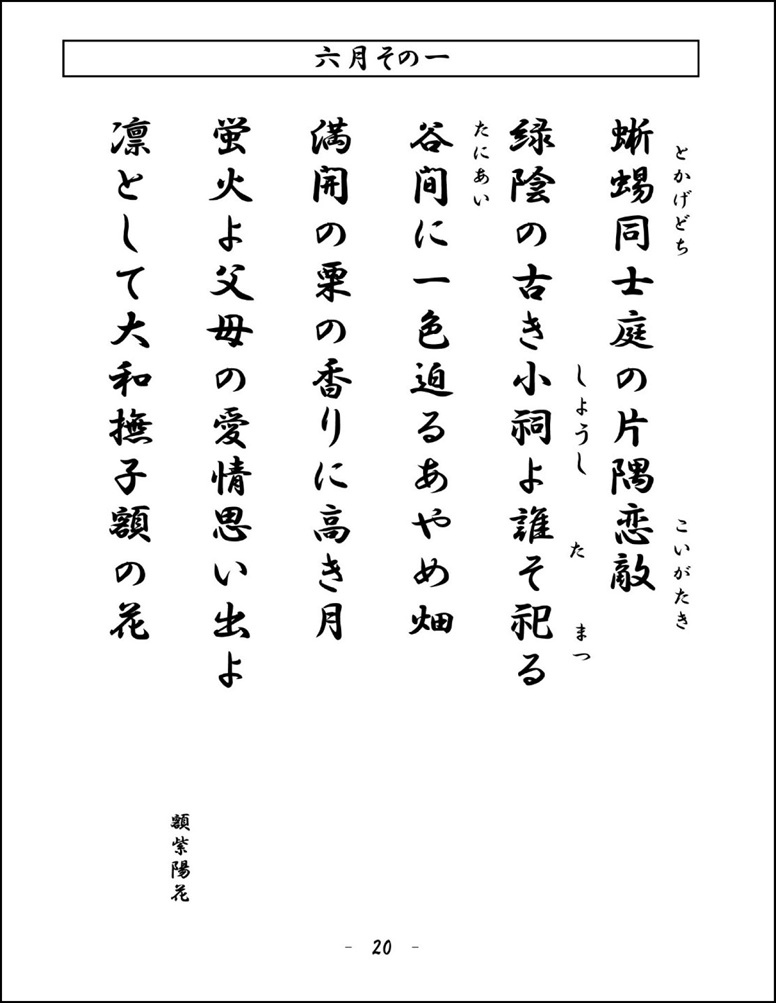 六月その一
とかげどち
こいがたき
蜥蜴同士庭の片隅恋敵
しょうし
た
まつ
緑陰の古き小祠よ誰そ祀る
たにあい
谷間に一色迫るあやめ畑
満開の栗の香りに高き月
蛍火よ父母の愛情思い出よ
額紫陽花
凛として大和撫子額の花
- 20 -